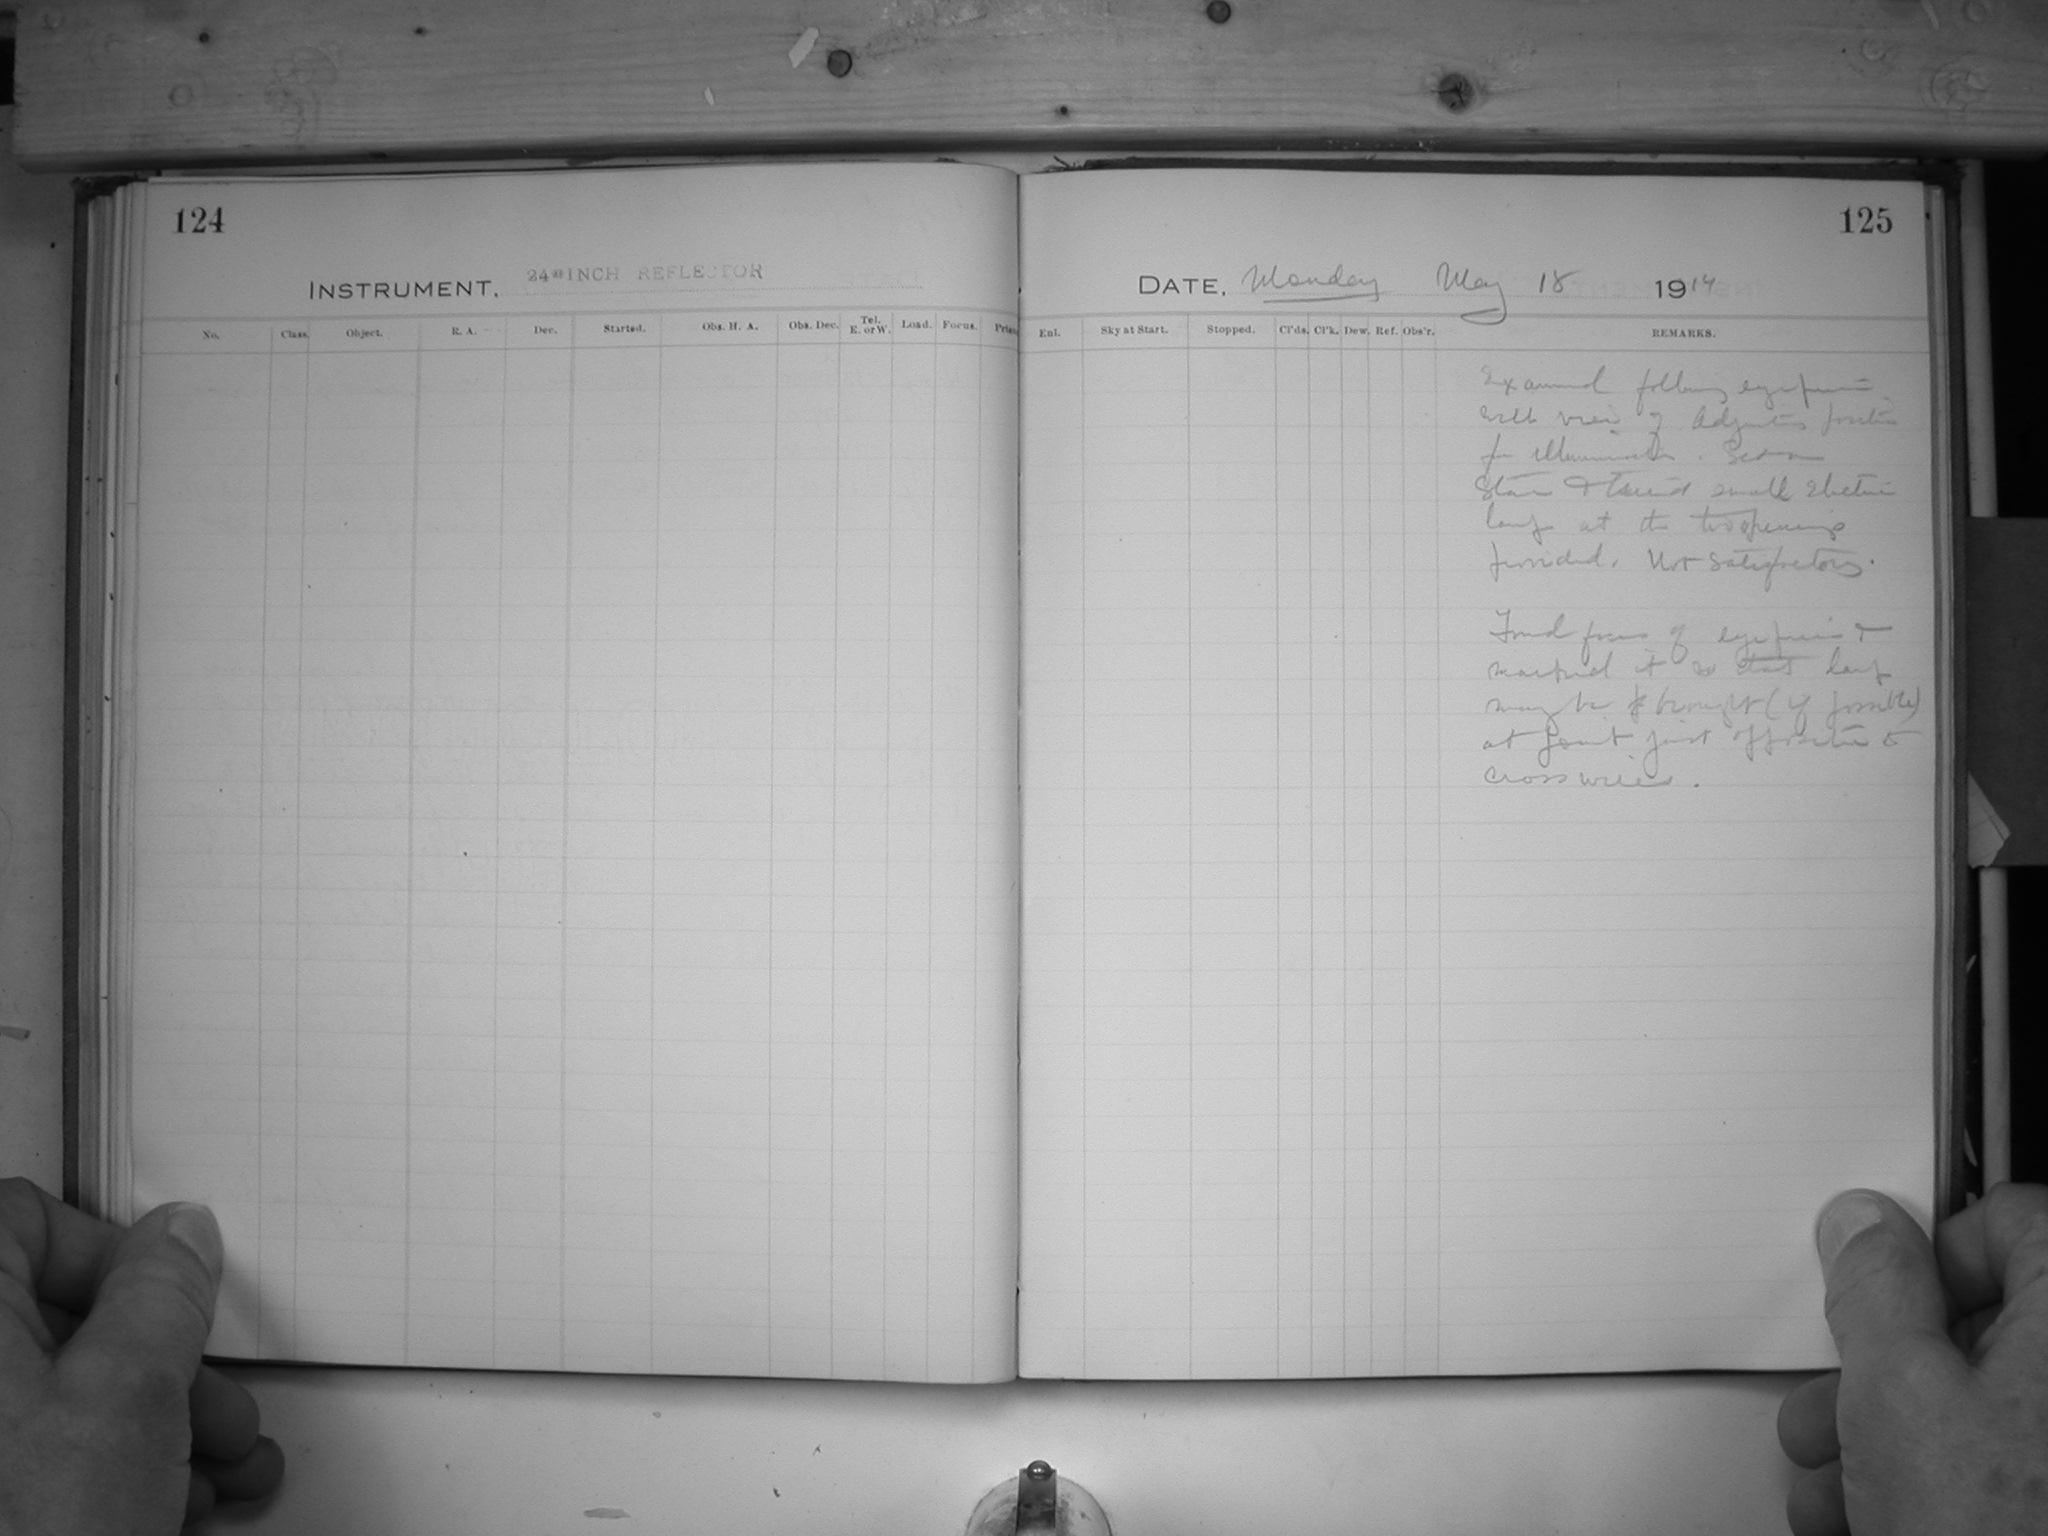 124
125
INSTRUMENT, 24-INCH REFLECTOR
DATE, Monday May 18 1914
No. Class. Object. R. A. Dec. Started. Obs. H. A. Obs. Dec. Tel. E. or W. Load. Focus.
Enl. Sky at Start. Stopped. Cl'ds. Cl'k. Dew. Ref. Obs'r. REMARKS.
Examined following eyepiece
with view of adjusting position
for illumination. Set on
Star & tried small electric
lamp at the two openings
provided. Not satisfactory.
Found focus of eyepiece &
marked it so that lamp
may be brought (if possible)
at point just opposite to
cross wires.